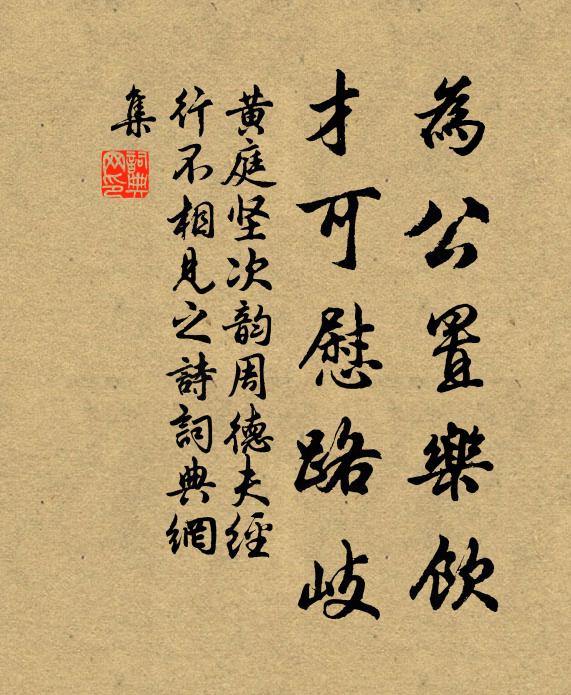 為公置樂飲
才可慰路岐
黄庭坚次韵周德夫經
行不相見之詩詞典網
集
詞典网印